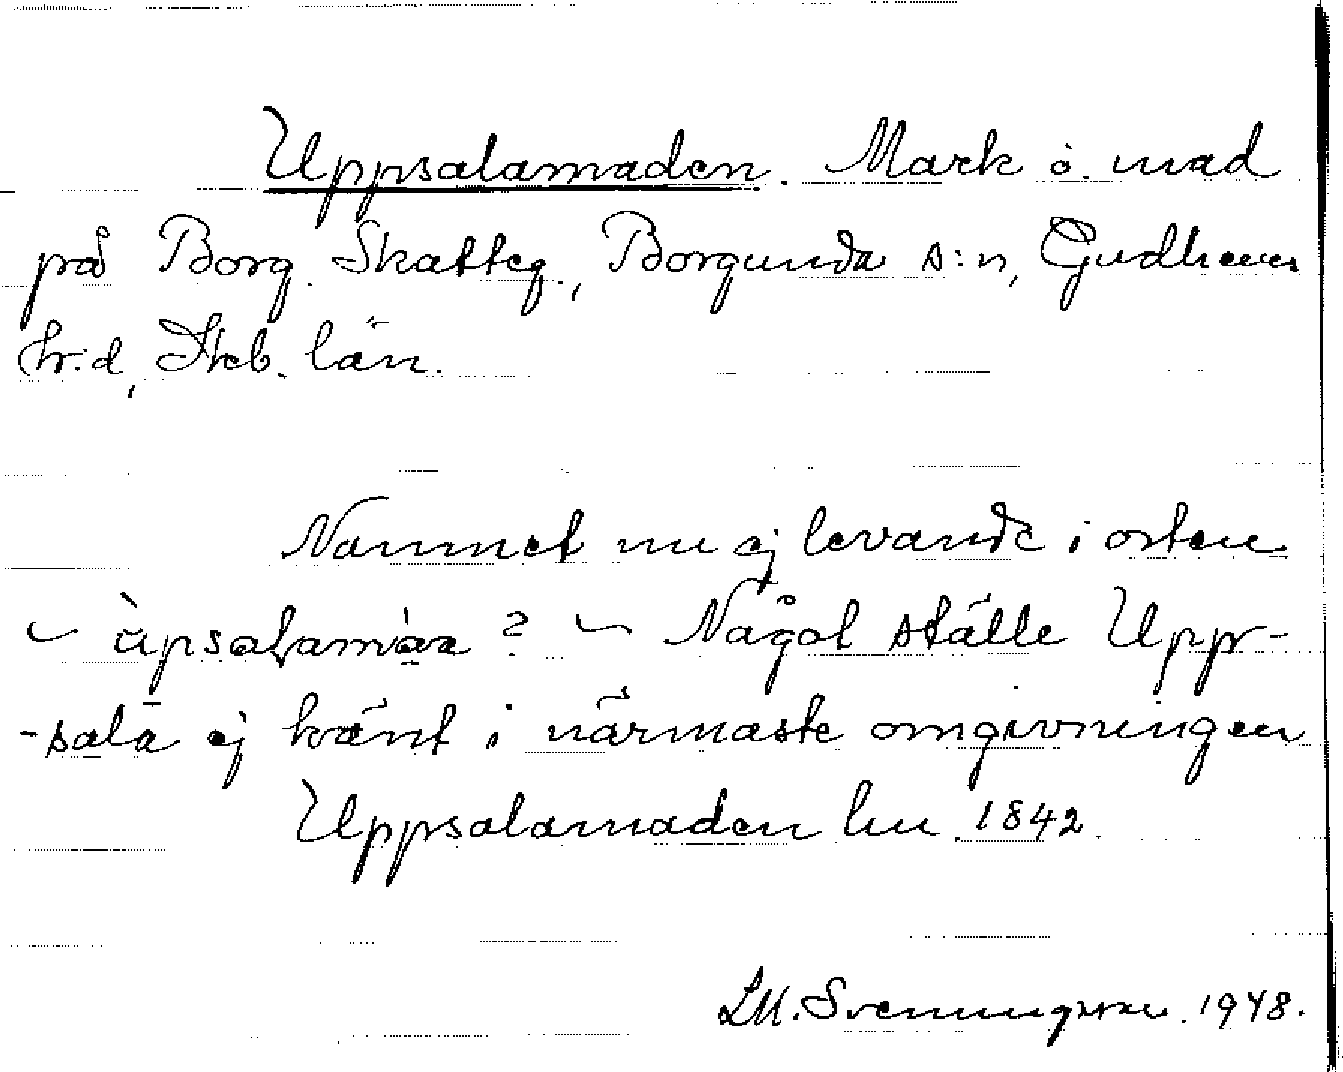 Uppsalamaden. Mark o. mad
på Borg Skatteg., Borgunda s:n, Gudhems
hr.d, Skb. län.
Namnet nu ej levande i orten
Något ställe Upp-
-sala ej känt i närmaste omgivningen
Uppsalamaden lm 1842.
LM. Svenungsson 1948.